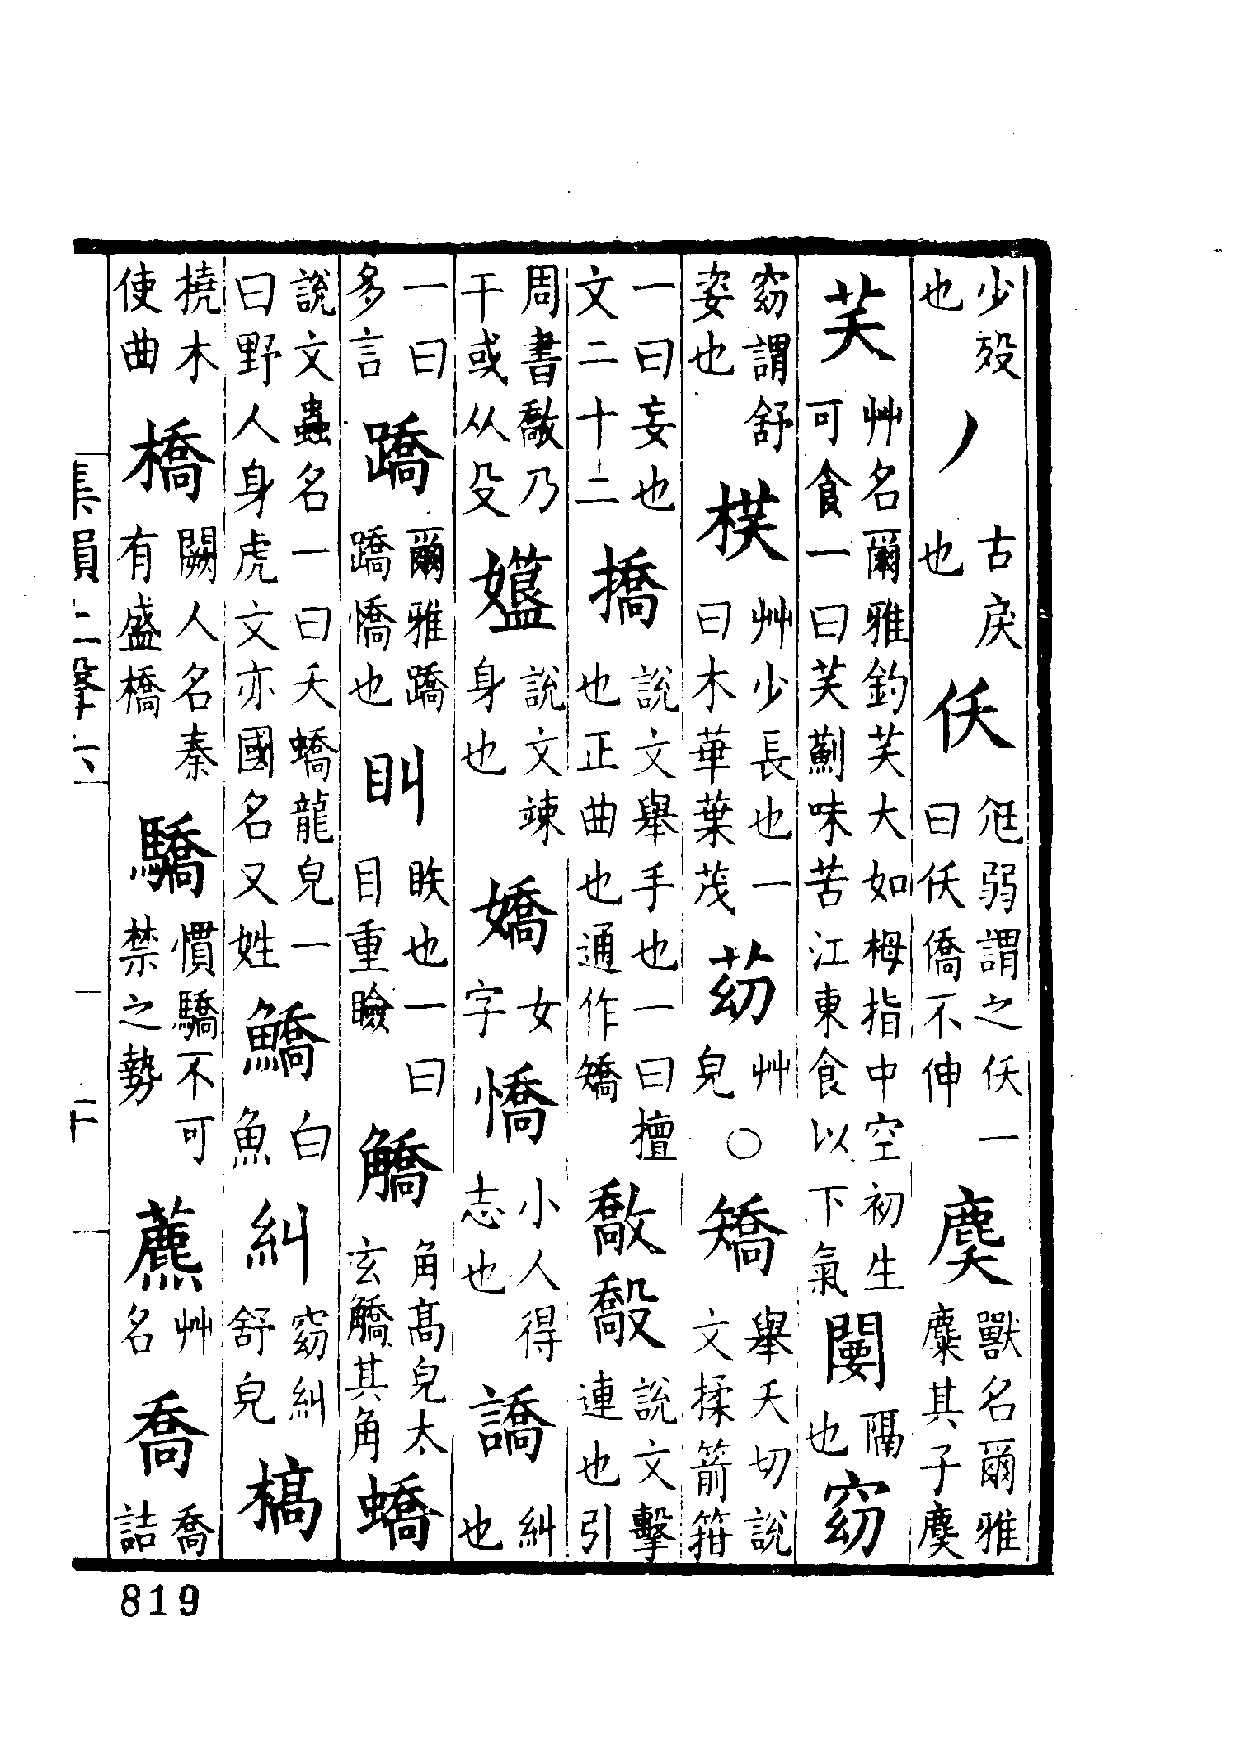 少歿也 丿 古戾也 仸 尫弱謂之仸一曰仸僑不伸 麌 獸名爾雅麋其子麌
芺 艸名爾雅鈞芺大如栂指中空初生可食一曰芺薊味苦江東食以下氣 闄 隔也 窈
窈謂舒姿也 楧 艸少長也一曰木華葉茂 苭 艸皃 ○ 矯 舉夭切說文揉箭箝
一曰妄也文二十二 撟 說文舉手也一曰擅也正曲也通作矯 敿 毃 說文擊連也引
周書敿乃干或从殳 孂 說文竦身也 嬌 女字 憍 小人得志也 譑 糾也
一曰多言 蹻 爾雅蹻蹻憍也 䀗 眣也一曰目重瞼 觿 角高皃太玄觿其角 蟜
說文蟲名一曰夭蟜龍皃一曰野人身虎文亦國名又姓 鱎 白魚 糾 窈糾舒皃 槁
撓木使曲 橋 闕人名秦有盛橋 驕 慣驕不可禁之勢 藨 艸名 喬 喬詰
集韻上聲六
819